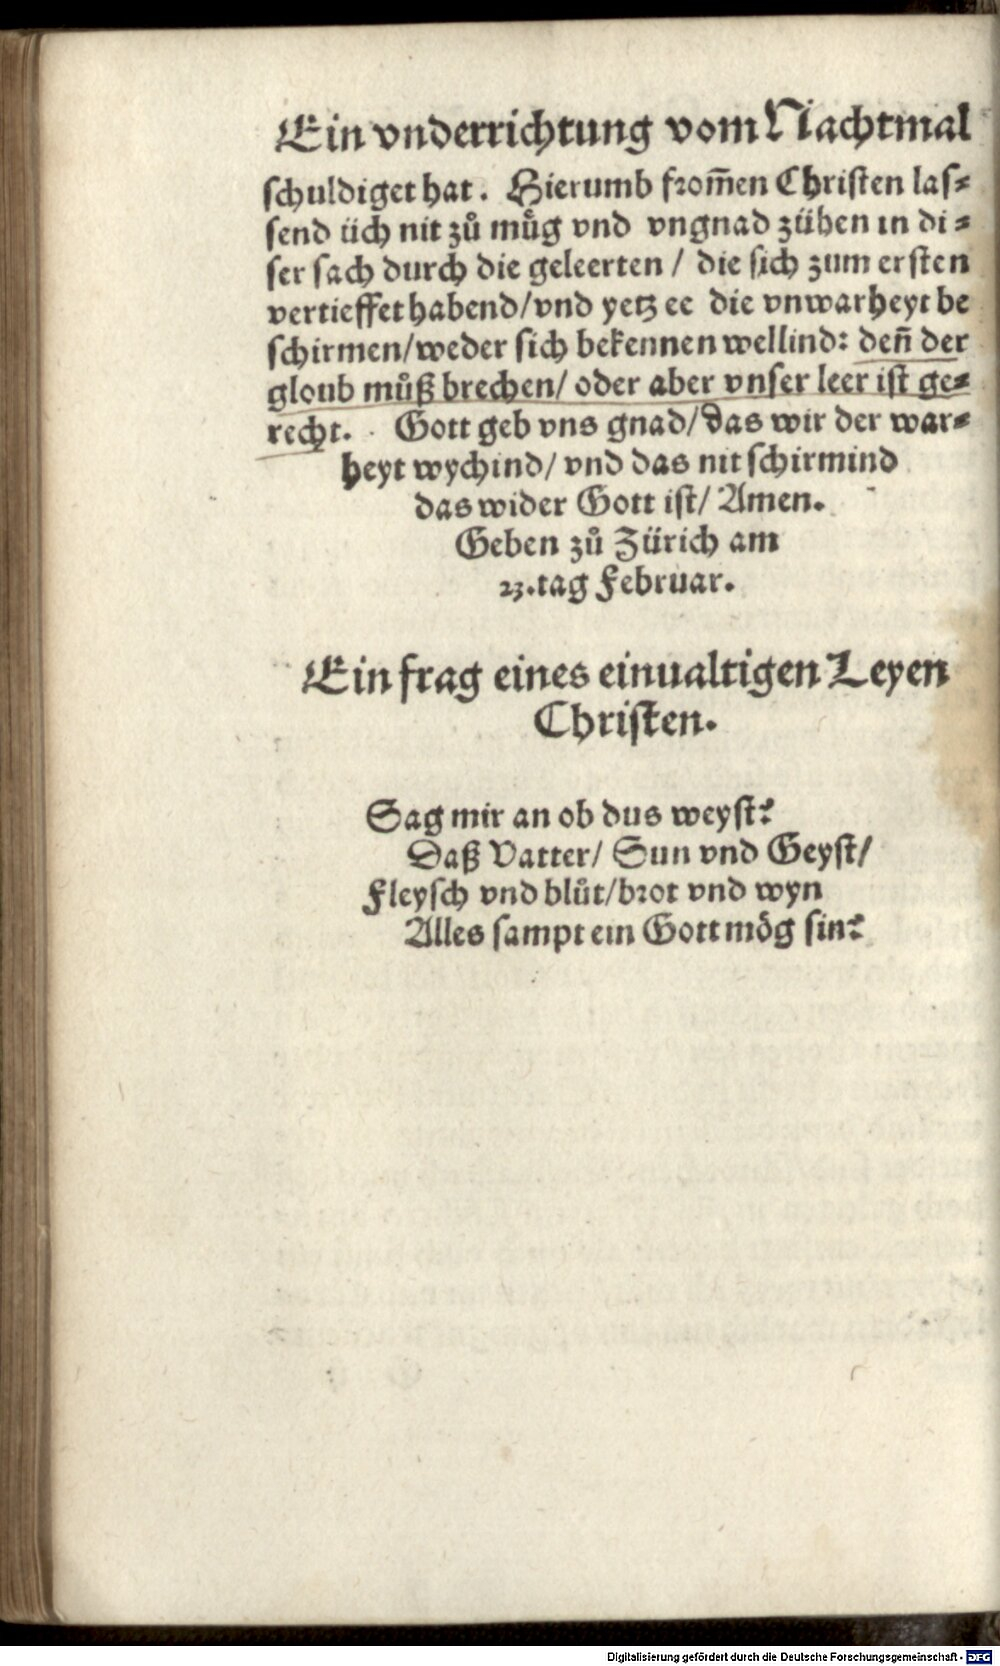 Ein vnderrichtung vom Nachtmal
schuldiget hat. Hierumb from̄en Christen las⸗
send üch nit zů mu᷑g vnd vngnad zühen in di⸗
ser sach durch die geleerten / die sich zum ersten
vertieffet habend/vnd yetz ee die vnwarheyt be
schirmen/weder sich bekennen wellind: den̄ der
gloub můß brechen/ oder aber vnser leer ist ge⸗
recht. Gott geb vns gnad/das wir der war⸗
heyt wychind/ vnd das nit schirmind
das wider Gott ist/ Amen.
Geben zů Zürich am
23.tag Februar.
Ein frag eines einualtigen Leyen
Christen.
Sag mir an ob dus weyst?
Daß Vatter/ Sun vnd Geyst/
Fleysch vnd blůt/brot vnd wyn
Alles sampt ein Gott mög sin?
Digitalisierung gefördert durch die Deutsche Forschungsgemeinschaft - DFG